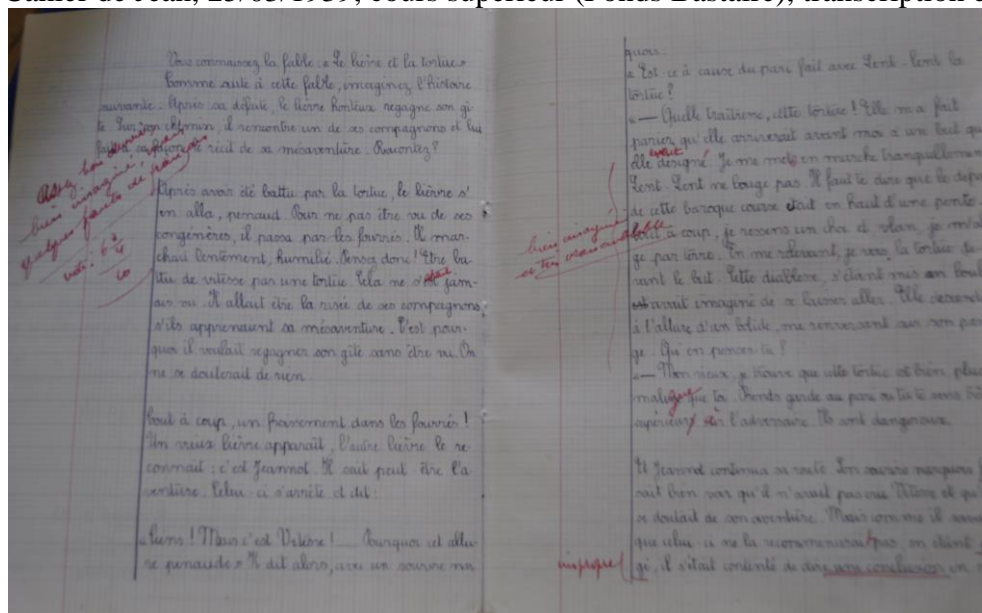 Vous connaissez la fable : « Le lièvre et la tortue »
Comme suite à cette fable, imaginez l'histoire
suivante. Après sa défaite, le lièvre honteux regagne son gî-
te. Sur son chemin, il rencontre un de ses compagnons et lui
fait à sa façon le récit de sa mésaventure. Racontez ?
Assez bon devoir
bien imaginé
quelques fautes de français
Après avoir été battu par la tortue, le lièvre s'
en alla, penaud. Pour ne pas être vu de ses
congénères, il passa par les fourrés. Il mar-
chait lentement, humilié. Pensez donc ! Être ba-
ttu de vitesse par une tortue. Cela ne s'était jam-
ais vu. Il allait être la risée de ses compagnons,
s'ils apprenaient sa mésaventure. C'est pour-
quoi il voulait regagner son gîte sans être vu. On
ne se douterait de rien.
Tout à coup, un froissement dans les fourrés !
Un vieux lièvre apparaît, l'autre lièvre le re-
connaît : c'est Jeannot. Il sait peut-être l'a-
venture. Celui-ci s'arrête et dit :
« Tiens ! Mais c'est Vitesse ! Pourquoi cet allu-
re penaude » Il dit alors, avec un sourire nar-
quois.
« Est-ce à cause du pari fait avec Lent-Lent la
tortue ?
« — Quelle traîtrise, cette tortue ! Elle m'a fait
parier qu'elle arriverait avant moi à un but qu'
elle avait désigné. Je me mets en marche tranquillement
Lent-Lent ne bouge pas. Il faut te dire que le dépa
de cette baroque course était en haut d'une pente.
Tout à coup, je ressens un choc et vlan, je m'al
ge par terre. En me relevant, je vois la tortue de-
vant le but. Cette diablesse, s'étant mis en boul
avait imaginé de se laisser aller. Elle descend
à l'allure d'un bolide, me renversant sur son pas
ge. Qu'en penses-tu ?
bien imaginé
et très vraisemblable
« — Mon vieux, je trouve que cette tortue est bien plus
maligne que toi. Prends garde au pari où tu te sens
supérieur sur l'adversaire. Ils sont dangereux.
Et Jeannot continua sa route. Son sourire narquois
sait bien voir qu'il n'avait pas cru Vitesse et qu'
se doutait de son aventure. Mais comme il
que celui-ci ne la recommencerait pas, en étant
impropre
gi, il s'était contenté de dire une conclusion en